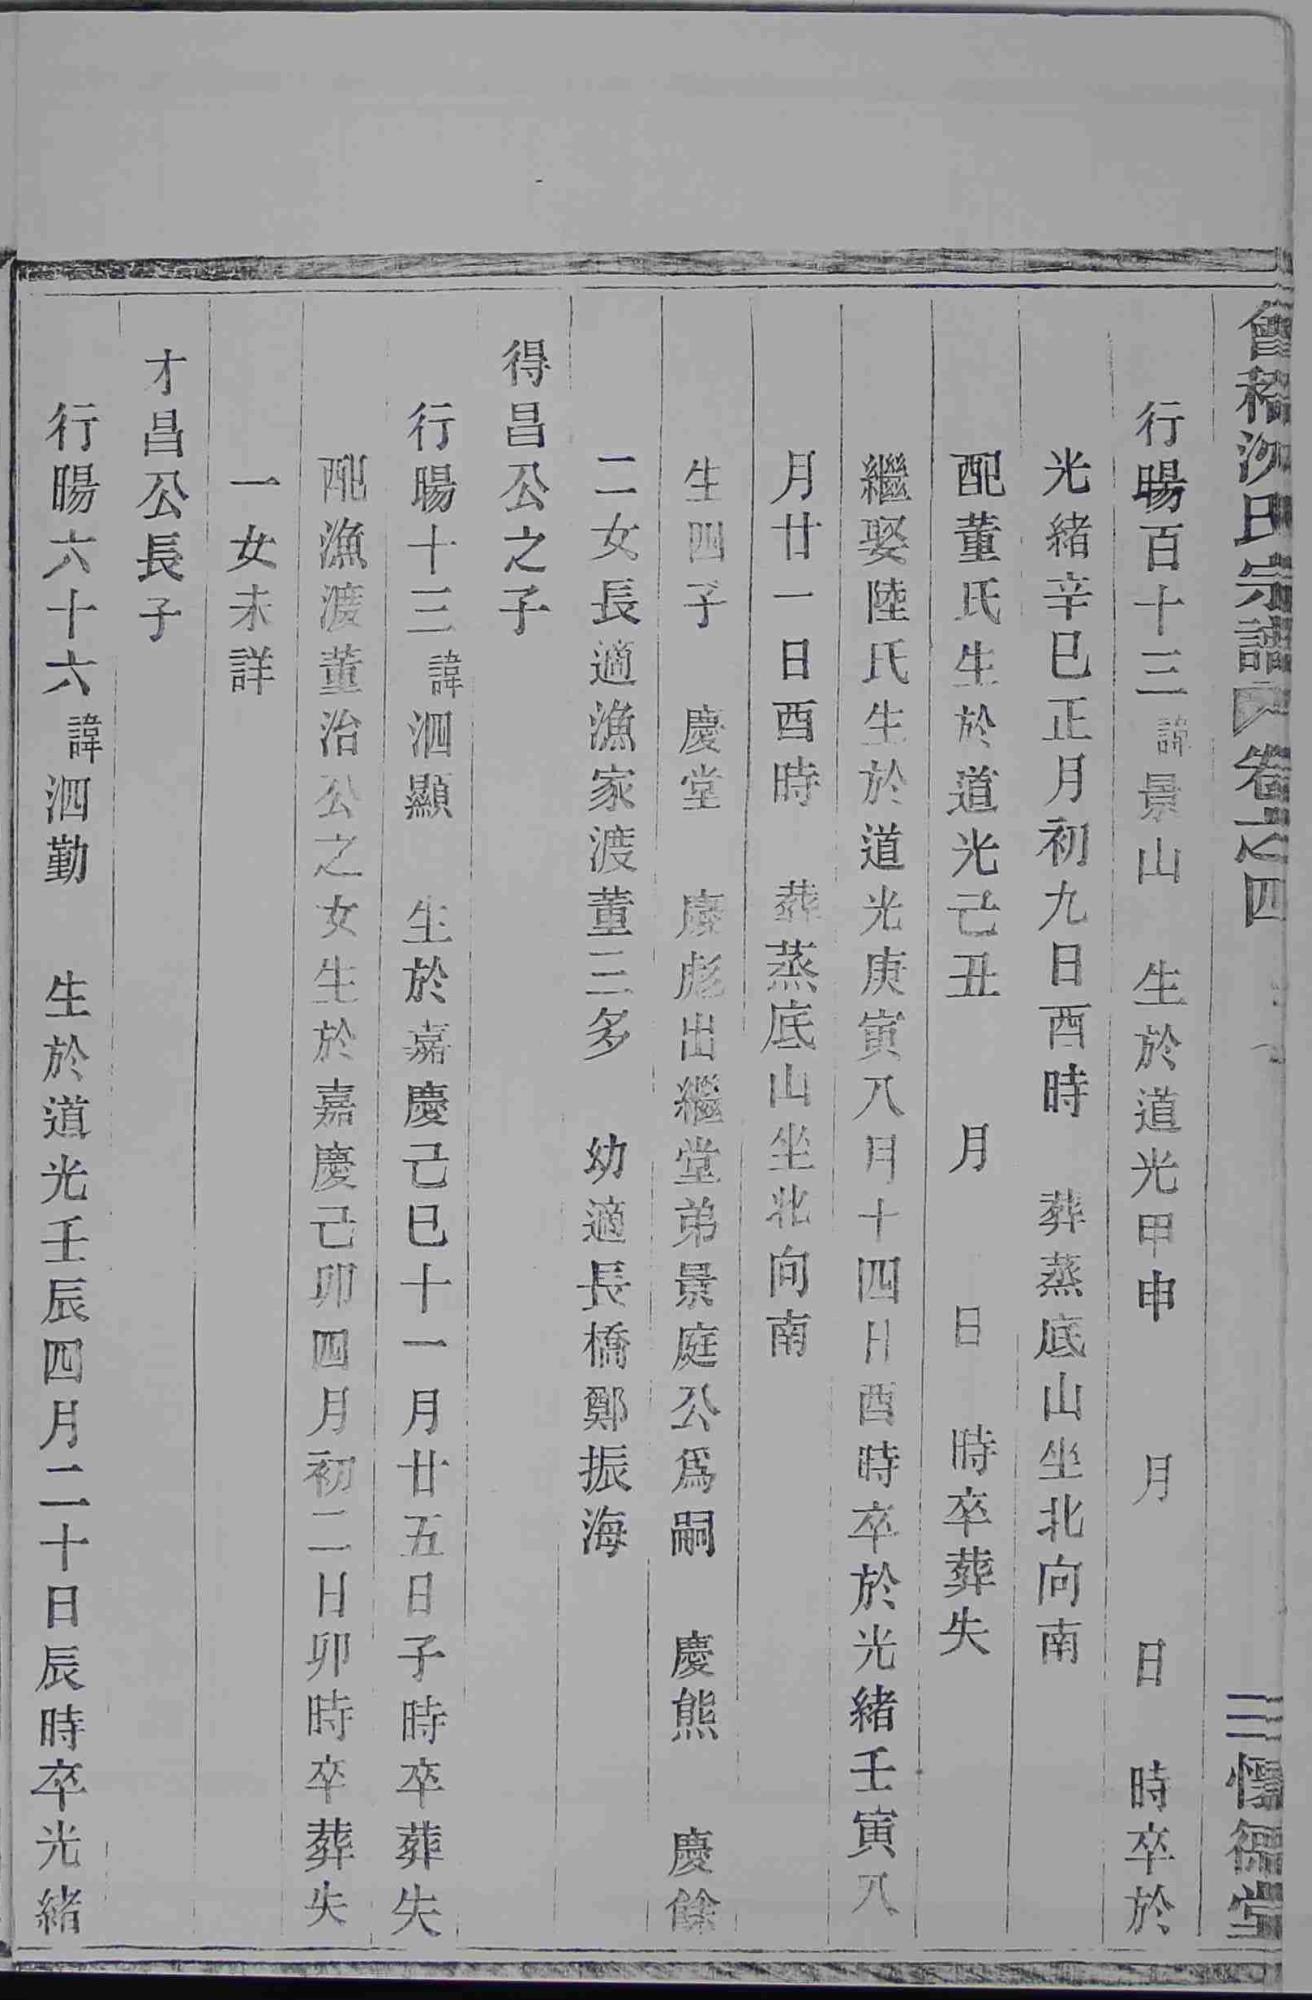 會稽沈氏宗譜 卷之四 三惺德堂
行暘百十三諱景山 生於道光甲申 月 日 時卒於
光緒辛巳正月初九日酉時 葬蒸底山坐北向南
配董氏生於道光己丑 月 日 時卒葬失
繼娶陸氏生於道光庚寅八月十四日酉時卒於光緒壬寅八
月廿一日酉時 葬蒸底山坐北向南
生四子 慶堂 慶彪出繼堂弟景庭公為嗣 慶熊 慶餘
二女長適漁家渡董三多 幼適長橋鄭振海
得昌公之子
行暘十三諱泗顯 生於嘉慶己巳十一月廿五日子時卒葬失
配漁渡董治公之女生於嘉慶己卯四月初二日卯時卒葬失
一女未詳
才昌公長子
行暘六十六諱泗勤 生於道光壬辰四月二十日辰時卒光緒